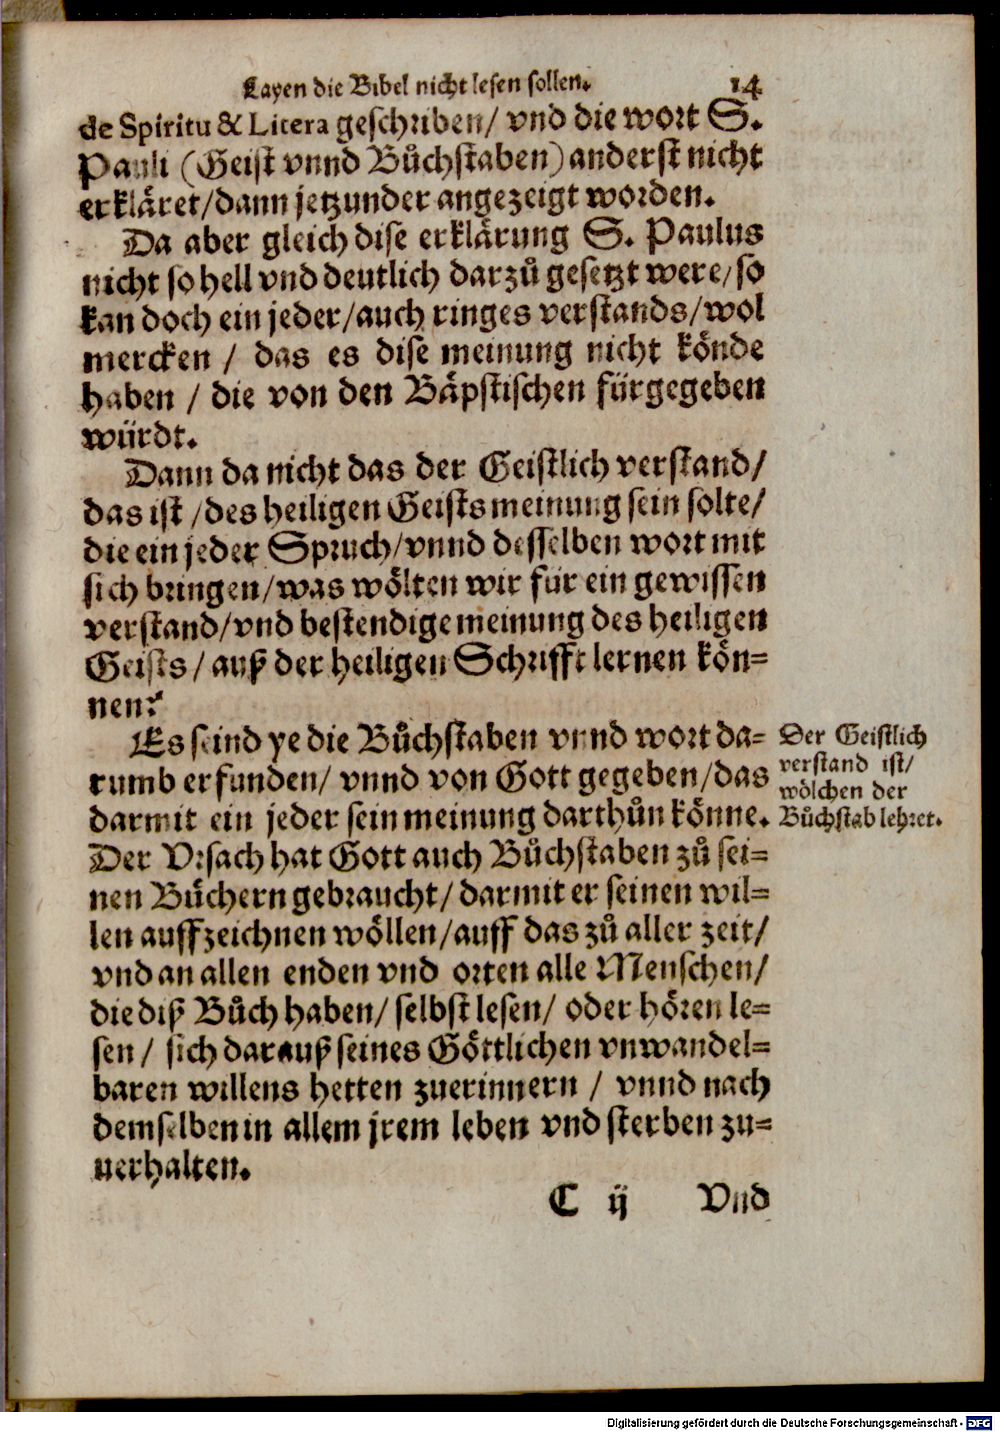 Layen die Bibel nicht lesen sollen. 14
de Spiritu & Litera geschriben/ vnd die wort S.
Pauli (Geist vnnd Bůchstaben) anderst nicht
erkläret/dann jetzunder angezeigt worden.
Da aber gleich dise erklärung S. Paulus
nicht so hell vnd deutlich darzů gesetzt were/so
kan doch ein jeder/auch ringes verstands/wol
mercken / das es dise meinung nicht könde
haben / die von den Bäpstischen fürgegeben
würdt.
Dann da nicht das der Geistlich verstand/
das ist /des heiligen Geists meinung sein solte/
die ein jeder Spruch/vnnd desselben wort mit
sich bringen/was wölten wir für ein gewissen
verstand/vnd bestendige meinung des heiligen
Geists/ auß der heiligen Schrifft lernen kön=
nen?
Es seind ye die Bůchstaben vnnd wort da=
rumb erfunden/ vnnd von Gott gegeben/das
darmit ein jeder sein meinung darthůn könne.
Der Geistlich
verstand ist/
wölchen der
Bůchstab lehret.
Der Vrsach hat Gott auch Bůchstaben zů sei=
nen Büchern gebraucht/ darmit er seinen wil=
len auffzeichnen wöllen/auff das zů aller zeit/
vnd an allen enden vnd orten alle Menschen/
die diß Bůch haben/ selbst lesen/ oder hören le=
sen/ sich darauß seines Göttlichen vnwandel=
baren willens hetten zuerinnern / vnnd nach
demselben in allem jrem leben vnd sterben zu=
uerhalten.
C ij Vnd
Digitalisierung gefördert durch die Deutsche Forschungsgemeinschaft - DFG